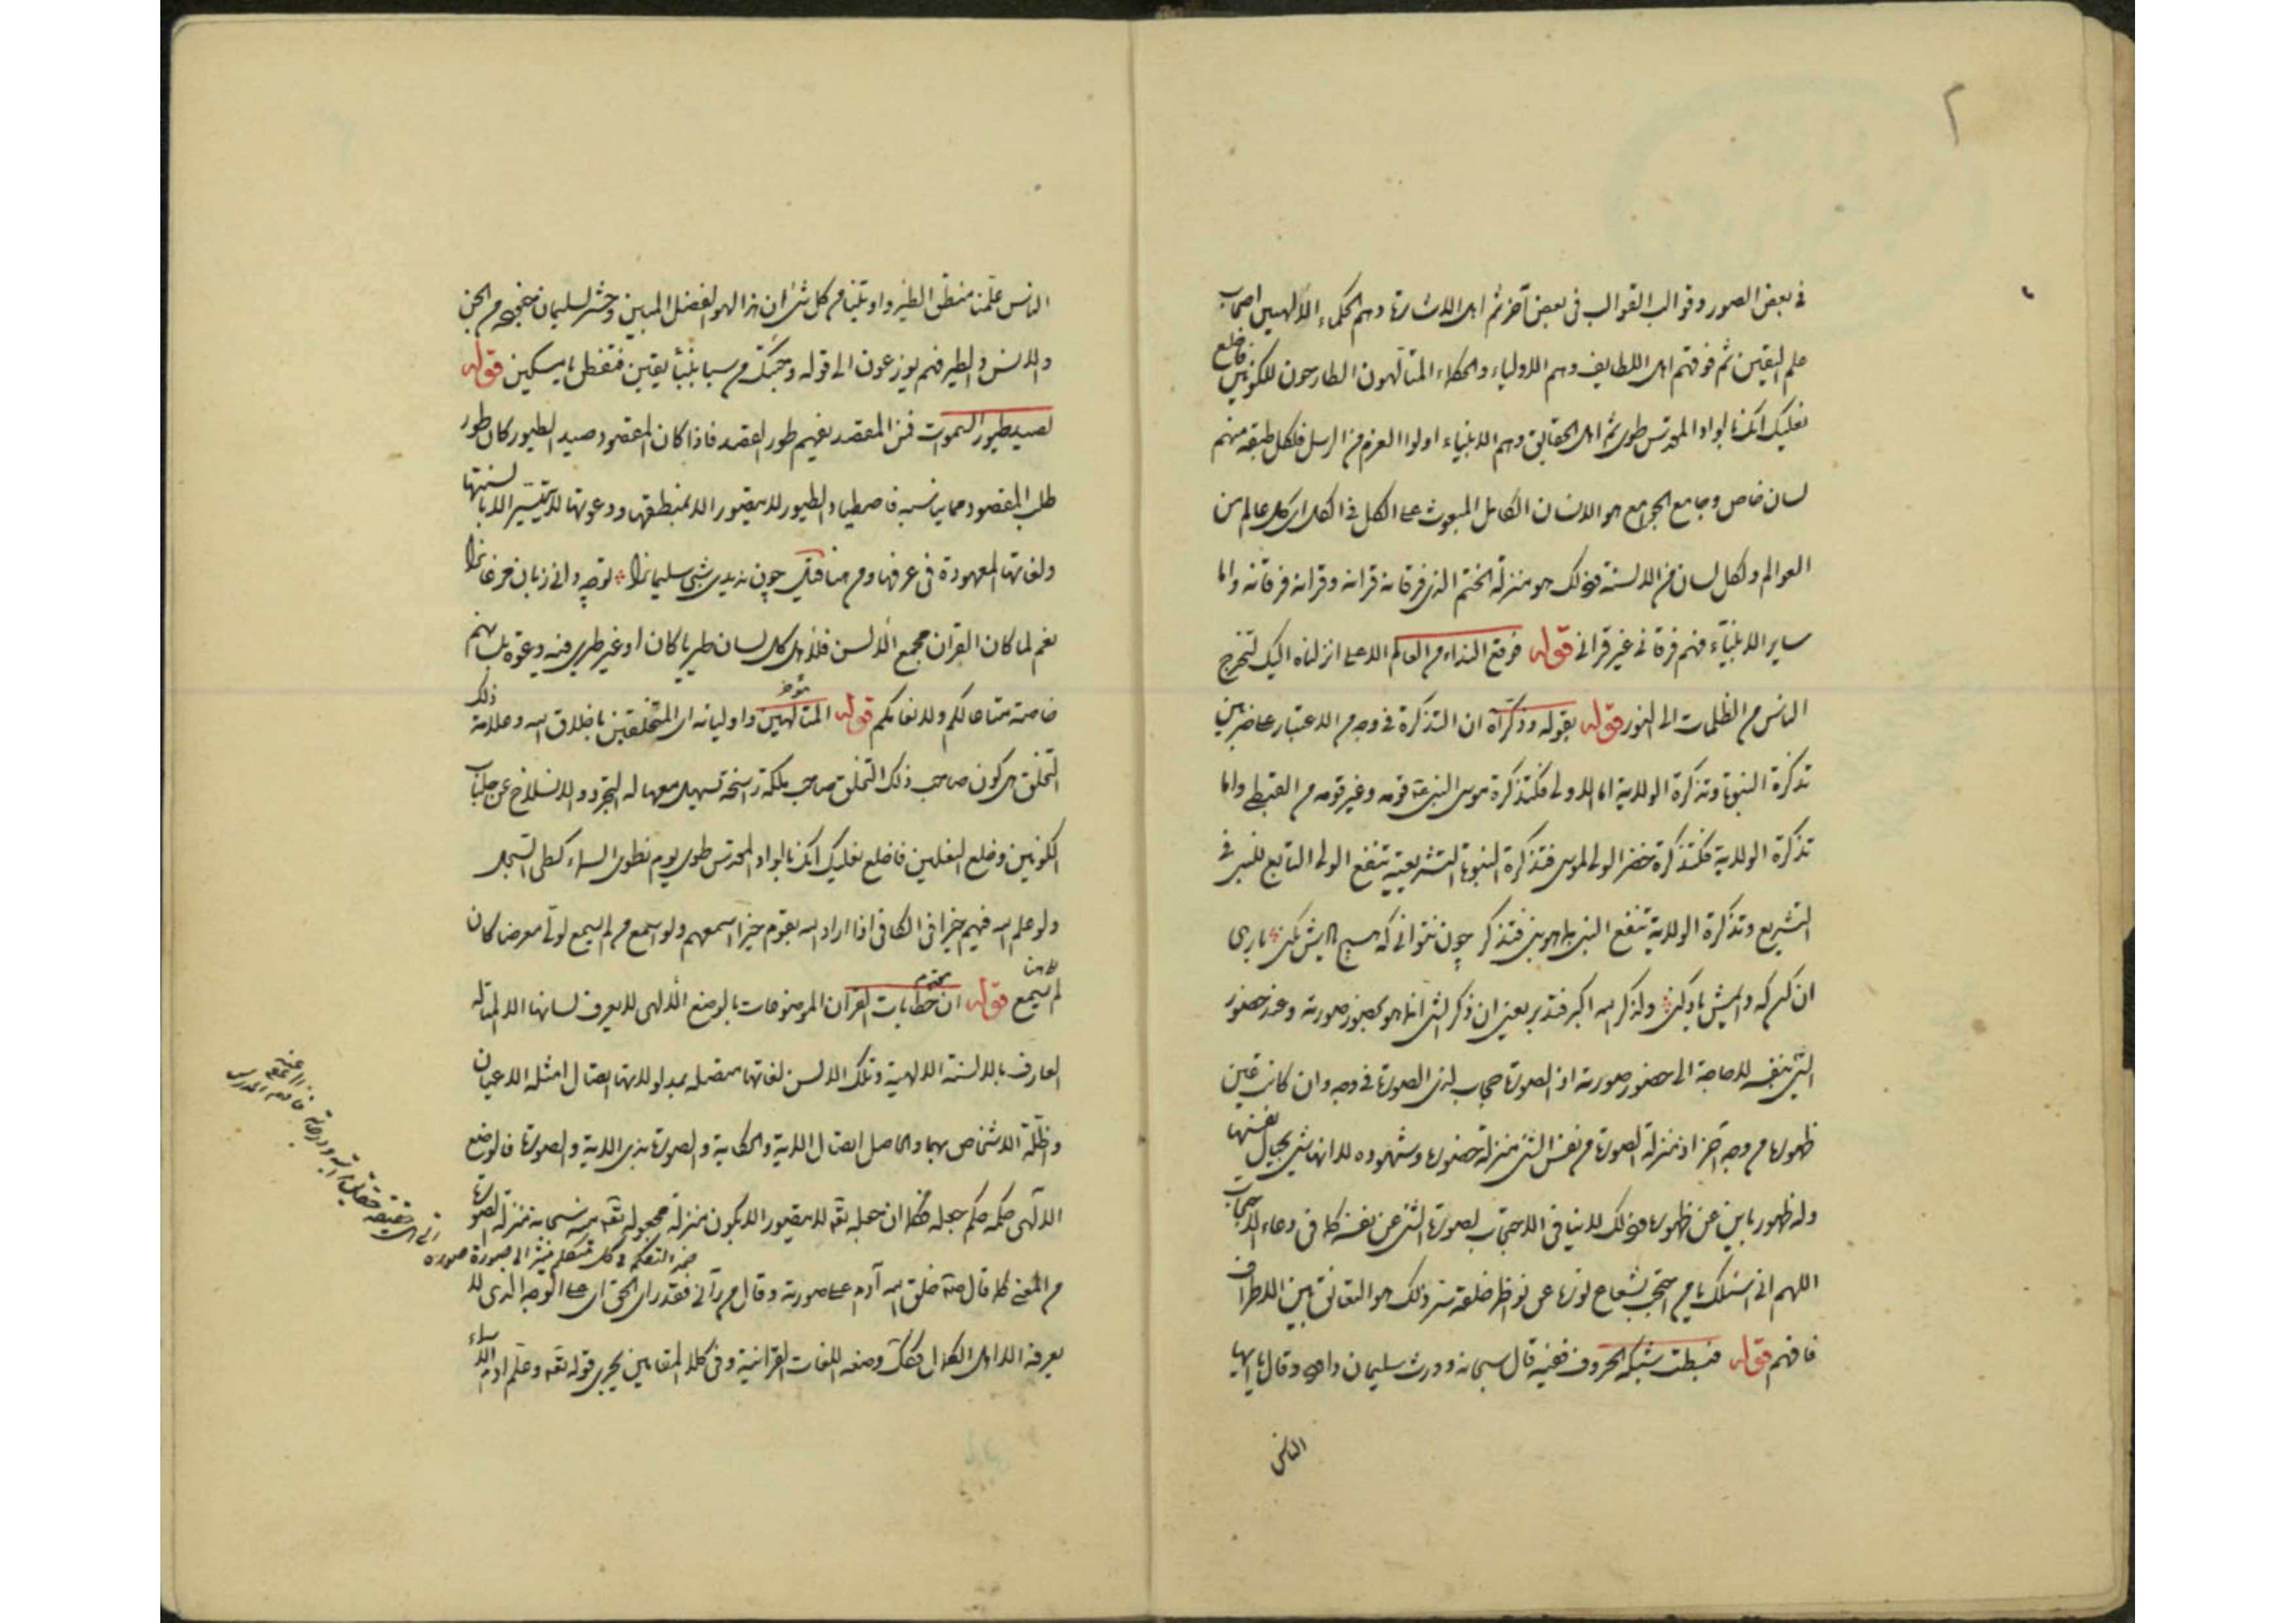 ٢
في بعض الصور وقوالب القوالب في بعض آخر ثم اهل الاشارة وهم الحكماء الالهيين اصحاب
علم اليقين ثم فوقهم اهل اللطايف وهم الاولياء والحكماء المتألهون الطارحون للكونين فاخلع
نعليك انك بالواد المقدس طوى ثم اهل الحقايق وهم الانبياء اولوا العزم من الرسل فلكل طبقة منهم
لسان خاص وجامع الجوامع هو الانسان الكامل المبعوث على الكل في الكل اي كل عالم من
العوالم ولكل لسان من الالسنة فذلك هو منزلة الختم الذي فرقانه قرانه وقرانه فرقانه واما
ساير الانبياء فهم فرقاني غير قراني قوله فوقع النداء من العالم الاعلى انزلناه اليك لتخرج
الناس من الظلمات الى النور قوله بقوله وذكرآه ان التذكرة في وجه من الاعتبار على ضربين
تذكرة النبوة وتذكرة الولاية اما الاولى فكتذكرة موسى النبي قومه وغير قومه من القبطي واما
تذكرة الولاية فكتذكرة خضر الولي لموسى فتذكرة النبوة التشريعية تنفع الولي التابع للنبي في
التشريع وتذكرة الولاية تنفع النبي بما هو نبي فتذكر چون نتوانی که هیچ یادش نکنی یاری
ان کن که دایمش یاد کنی ولذكر الله اكبر فتدبر يعني ان ذكر الشئ انما هو بحضور صورته وعند حضور
الشئ بنفسه لا حاجة الى حضور صورته اذ الصورة حجاب لذي الصورة في وجه وان كانت عين
ظهوره من وجه آخر اذ منزلة الصورة من نفس الشئ منزلة حضوره وشهوده لا انها شئ بحيال نفسها
وله ظهور باين عن ظهوره فذلك لا ينافي الاحتجاب بصورة الشئ عن نفسه كما في دعاء الاحتجاب
اللهم اني اسئلك يا من احتجب بشعاع نوره عن نواظر خلقه سر ذلك هو التعانق بين الاطراف
فافهم قوله فبسطت شبكة الحروف ففيه قال سبحانه وورث سليمان داود وقال يا ايها
الناس
الناس علمنا منطق الطير واوتينا من كل شئ ان هذا لهو الفضل المبين وحشر لسليمان جنوده من الجن
والانس والطير فهم يوزعون الى قوله وجئتك من سبا بنبأ يقين فتفطن يا مسكين قوله
لصيد طيور السموات فمن المقصد يفهم طور القصد فاذا كان المقصود صيد الطيور كان طور
طلب المقصود مما يناسبه فاصطياد الطيور لا يتصور الا بمنطقها ودعوتها لا يتيسر الا بالسنتها
ولغاتها المعهودة في عرفها ومن هنا قيل چون ندیدی شبی سلیمانرا تو چه دانی زبان مرغانرا
نعم لما كان القران مجمع الالسن فلاهل كل لسان طيريا كان او غير طيري فيه دعوة بلسانهم
خاصة متاعا لكم ولانعامكم قوله المتألهين واوليائه اي المتخلقين باخلاق الله وعلامة ذلك
التخلق هي كون صاحب ذلك التخلق صاحب ملكة راسخة تسهل معها له التجرد والانسلاخ عن جلباب
الكونين وخلع النعلين فاخلع نعليك انك بالواد المقدس طوى يوم نطوي السماء كطي السجل
ولو علم الله فيهم خيرا في الكافي اذا اراد الله بقوم خيرا اسمعهم ولو اسمع من لم يسمع لولى معرضا كان
لم يسمع قوله ان خطابات القران الموضوعات بالوضع الالهي لا يعرف لسانها الا المتاله
العارف بالالسنة الالهية وتلك الالسن لغاتها متصلة بمدلولاتها اتصال امثلة الاعيان
واظلة الاشخاص بها والحاصل اتصال الاية والحكاية والصورة بذي الاية والصورة فالوضع
الالهي حكمه حكم جعله فكما ان جعله تعه لا يتصور الا بكون منزلة مجعوله تعه منه سبحانه منزلة الصورة
من المعنى كما قال خلق الله آدم على صورته وقال من رآني فقد راى الحق اي على الوجه الذي لا
يعرفه الا اهل الكمال فكذلك وضعه اللغات القرانية وفي كلا المقامين يجري قوله تعه وعلم ادم الاسماء